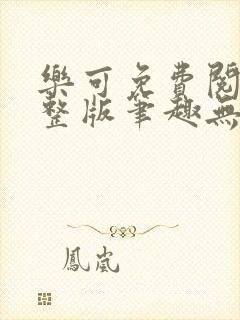 樂可免費閱
整版筆趣無
鳳嵐